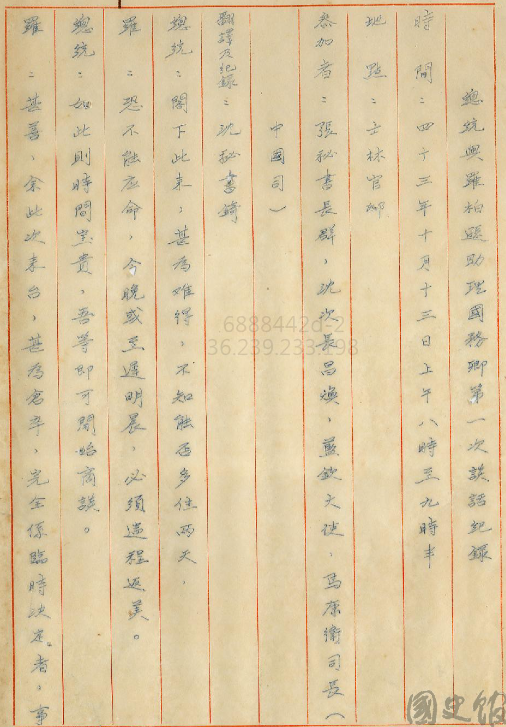 總統與羅柏遜助理國務卿第一次談話紀錄
時間:四十三年十月十三日上午八時至九時半
地點:士林官邸
參加者:張秘書長群,沈次長昌煥,藍欽大使,馬康衛司長(
中國司)
翻譯及紀錄:沈秘書錡
總統:閣下此來,甚為難得,不知能否多住兩天,
羅:恐不能應命,今晚或至遲明晨,必須遄程返美。
總統:如此則時間寶貴,吾等即可開始商談。
羅:甚善,余此次來台,甚為倉卒,完全係臨時決定者,事
6888442d-2
36.239.233.198
國史館